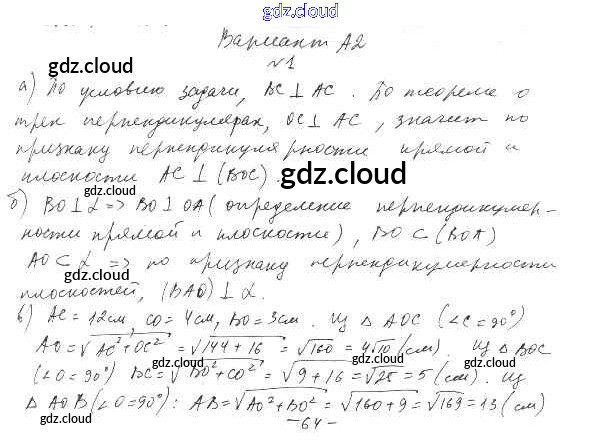 gdz.cloud
Вариант А2
gdz.cloud
№1
а) По условию задачи, BC ⊥ AC. По теореме о
gdz.cloud
трех перпендикулярах, OC ⊥ AC, значит по
признаку перпендикулярности прямой и
плоскости AC ⊥ (BOC).
gdz.cloud
gdz.cloud
б) BO ⊥ α => BO ⊥ OA (определение перпендикуляр-
ности прямой и плоскости), BO ⊂ (BOA)
gdz.cloud
AO ⊂ α => по признаку перпендикулярности
gdz.cloud
плоскостей, (BAO) ⊥ α.
в) AC = 12см, CO = 4см, BO = 3см. Из △ AOC (∠C = 90°)
gdz.cloud
AO = √AC² + OC² = √144 + 16 = √160 = 4√10 (см). Из △ BOC
gdz.cloud
(∠O = 90°) BC = √BO² + CO² = √9 + 16 = √25 = 5 (см). Из
△ AOB (∠O = 90°): AB = √AO² + BO² = √160 + 9 = √169 = 13 (см)
gdz.cloud
-64-